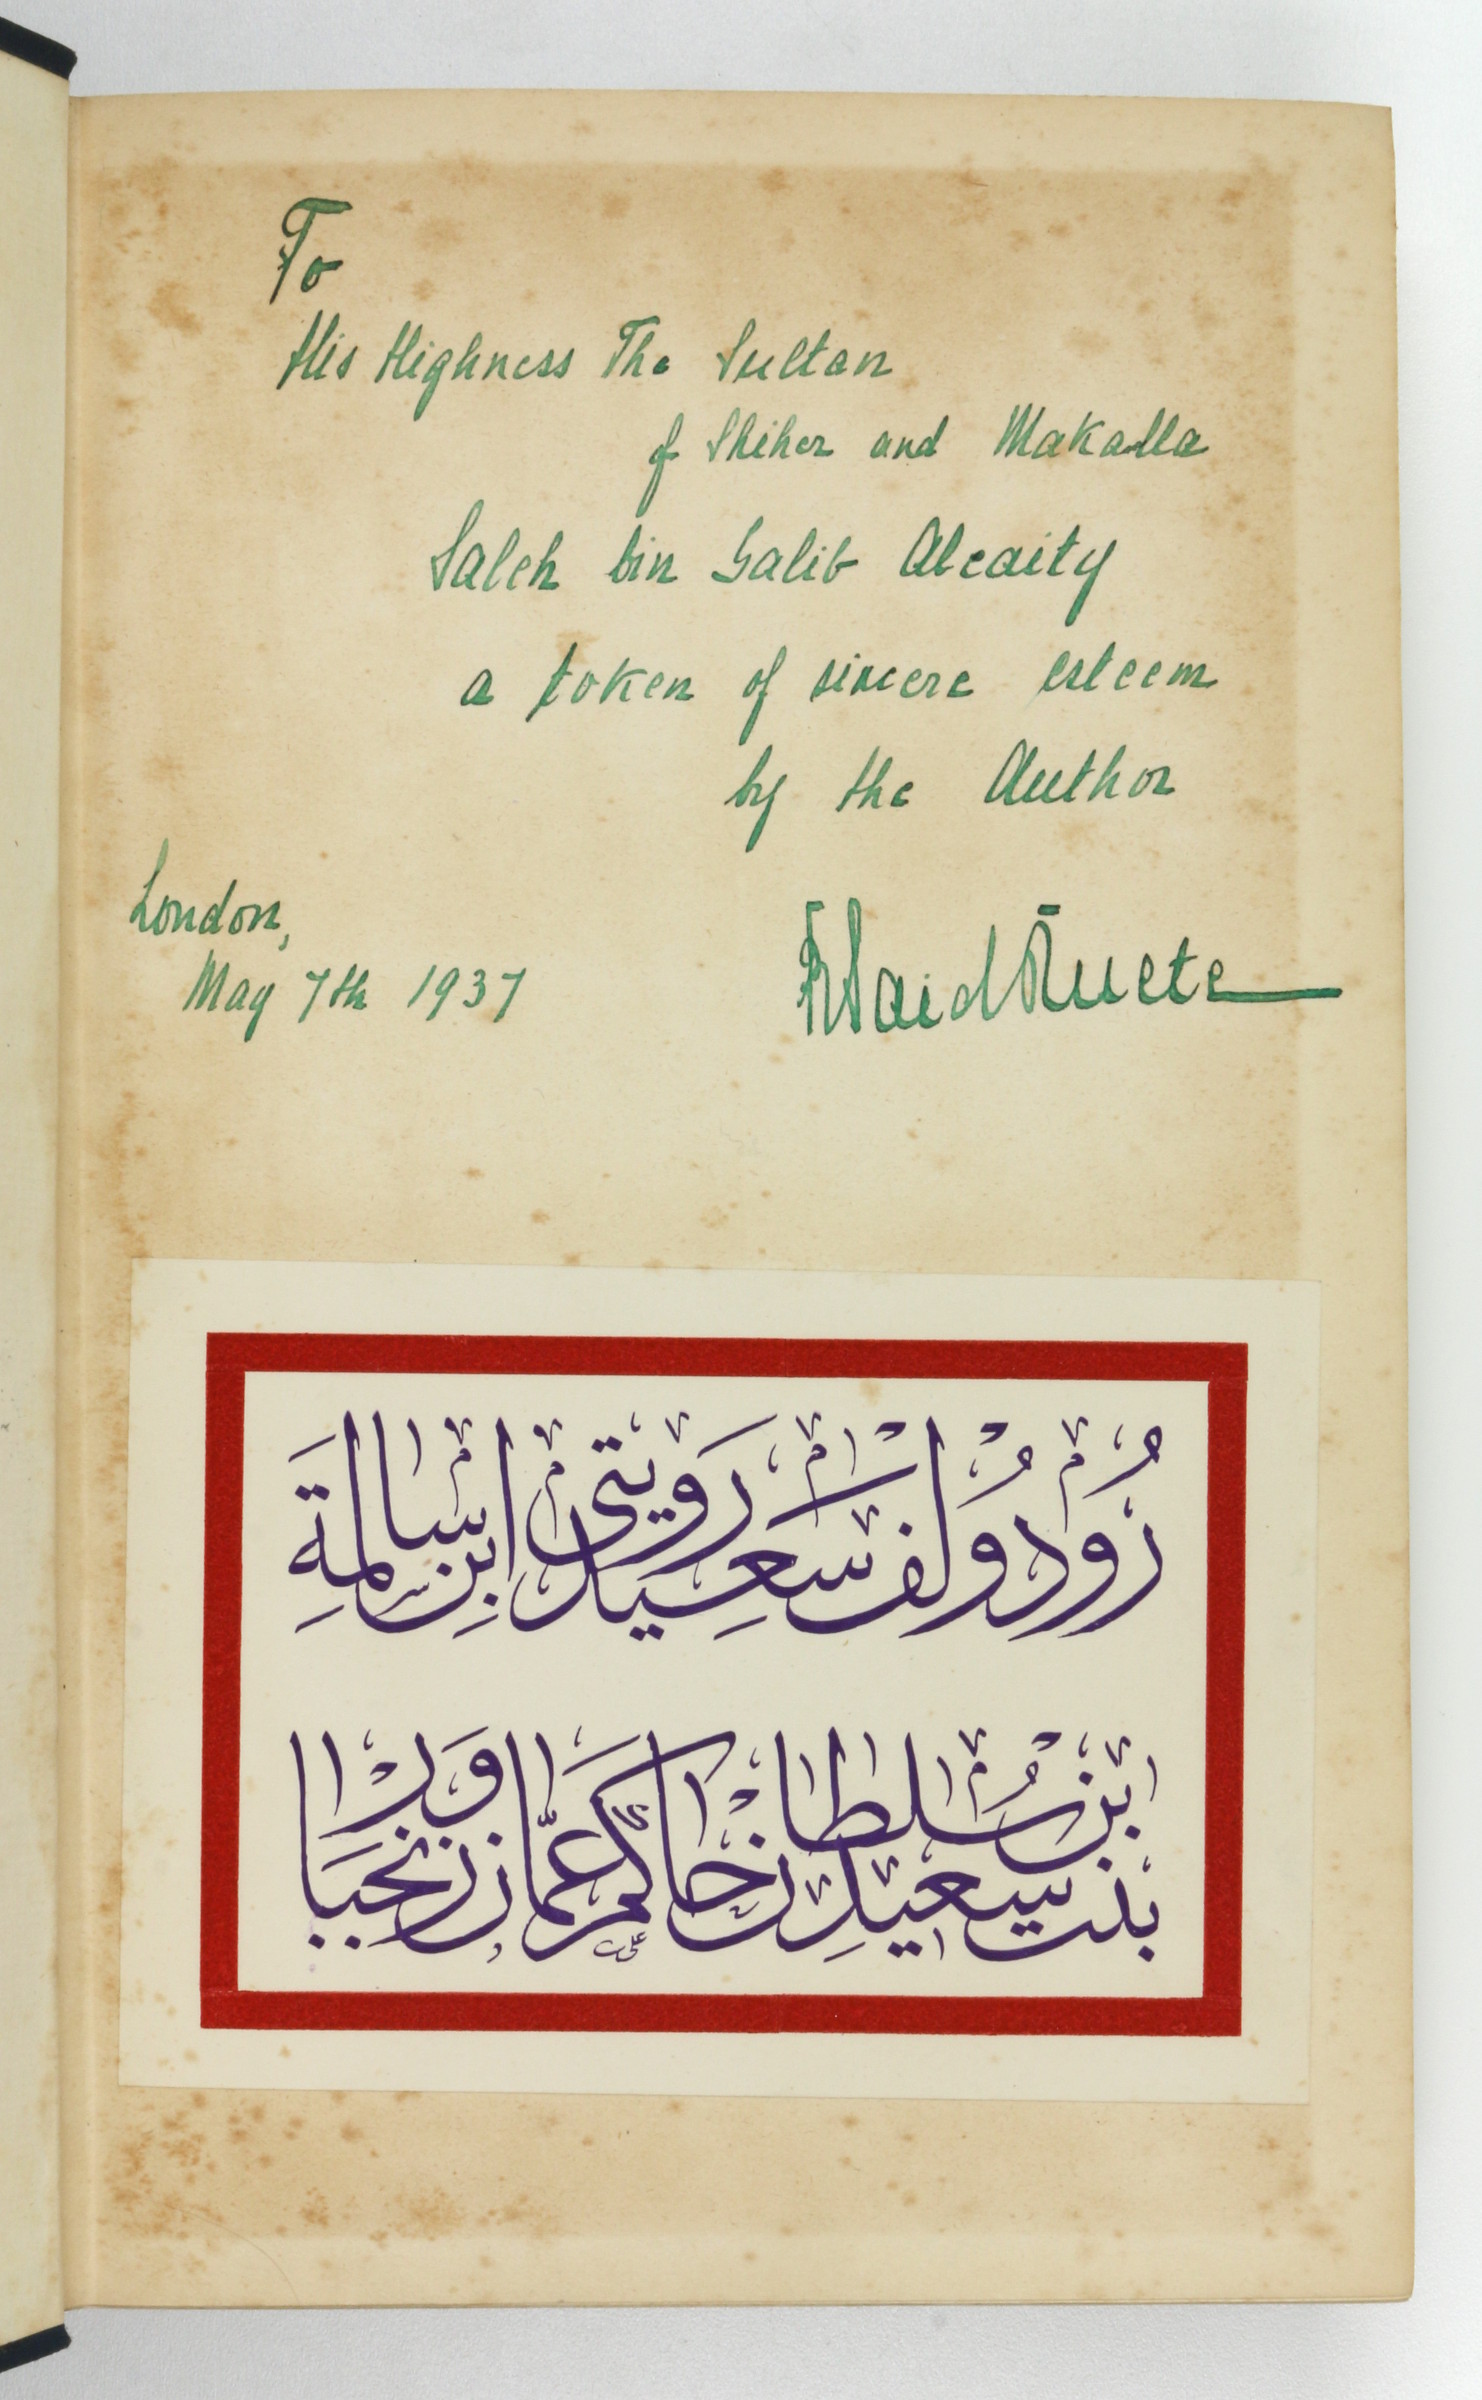 To
His Highness The Sultan
of Shiher and Makalla
Saleh bin Galib Alcaity
a token of sincere esteem
by the Author
London,
May 7th 1937
R Said Ruete
رُودُولف سَعِيد رَويتى ابن سالمة
بنت سعيد ابن سُلطان حاكم عمّان وزنجبار